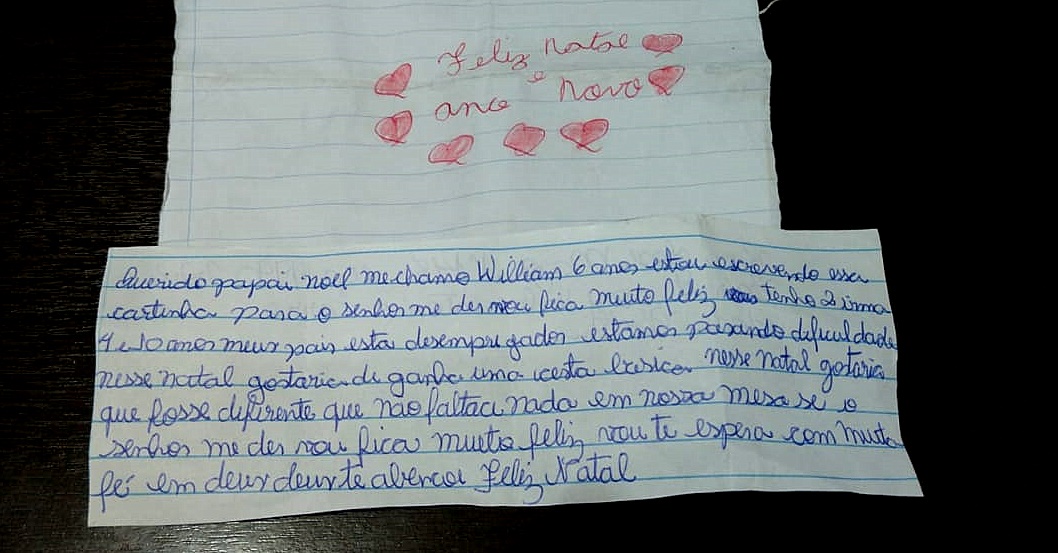 Feliz Natal
e
ano Novo
Querido papai noel me chamo William 6 anos estou escrevendo essa
cartinha para o senhor me der vou fica muito feliz tenho 2 irma
4 e 10 anos meus pais esta desempregados estamos pasando dificuldade
nesse natal gostaria de ganha uma cesta basica nesse natal gostaria
que fosse diferente que não faltaci nada em nossa mesa se o
senhor me der vou fica muito feliz vou te espera com muita
fé em deus deus te abencoi Feliz Natal